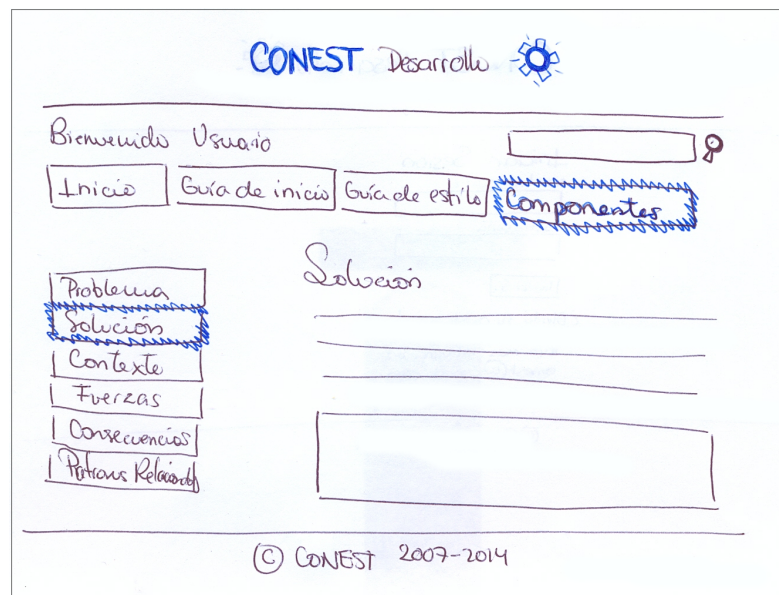 CONEST Desarrollo
Bienvenido Usuario
Inicio Guía de inicio Guía de estilo Componentes
Problema
Solución
Contexto
Fuerzas
Consecuencias
Solución
© CONEST 2007-2014